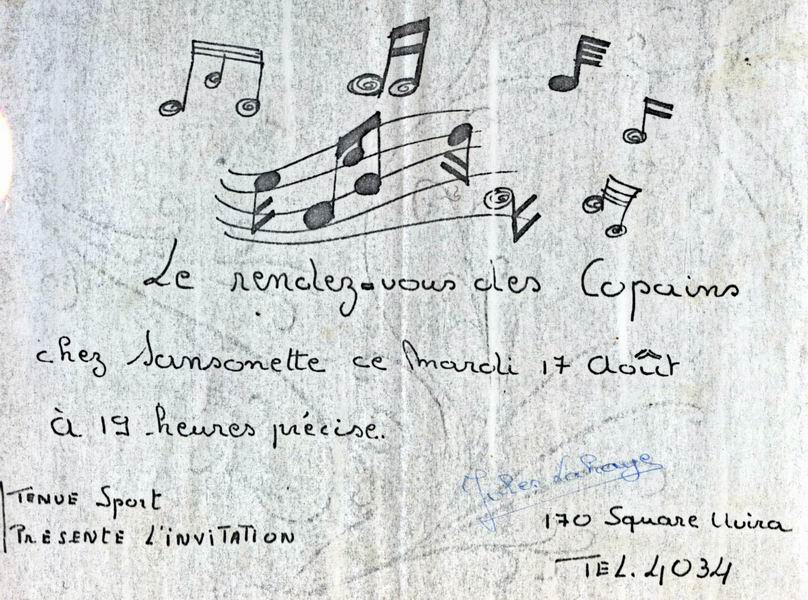 Le rendez-vous des Copains
chez Sansonette ce Mardi 17 Août
à 19 heures précise.
Jules Lahaye
TENUE Sport
PRESENTE L'INVITATION
170 Square Uvira
TEL. 4034